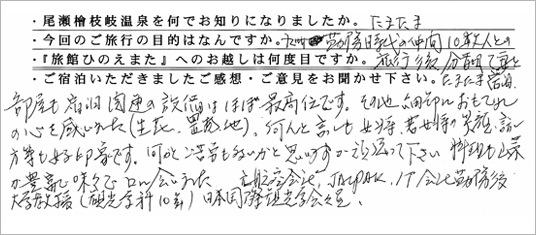 ・尾瀬檜枝岐温泉を何でお知りになりましたか。たまたま
・今回のご旅行の目的はなんですか。勤務時代の仲間10数人との
・『旅館ひのえまた』へのお越しは何度目ですか。旅行後、分割で
・ご宿泊いただきましたご感想・ご意見をお聞かせ下さい。たまたま宿泊
部屋も宿泊関連の設備はほぼ最高位です。その他細部におもてなし
の心を感じました(生花、置)。何んと言っても女将、若女将の笑顔、話し
方等も好印象です。何かとご苦労も多いかと思いますが頑張って下さい 料理も山菜
が豊富で味も 航空会社、JALPAK、IT会社勤務後
大学教授(観光学科10年)日本国際観光学会会員、